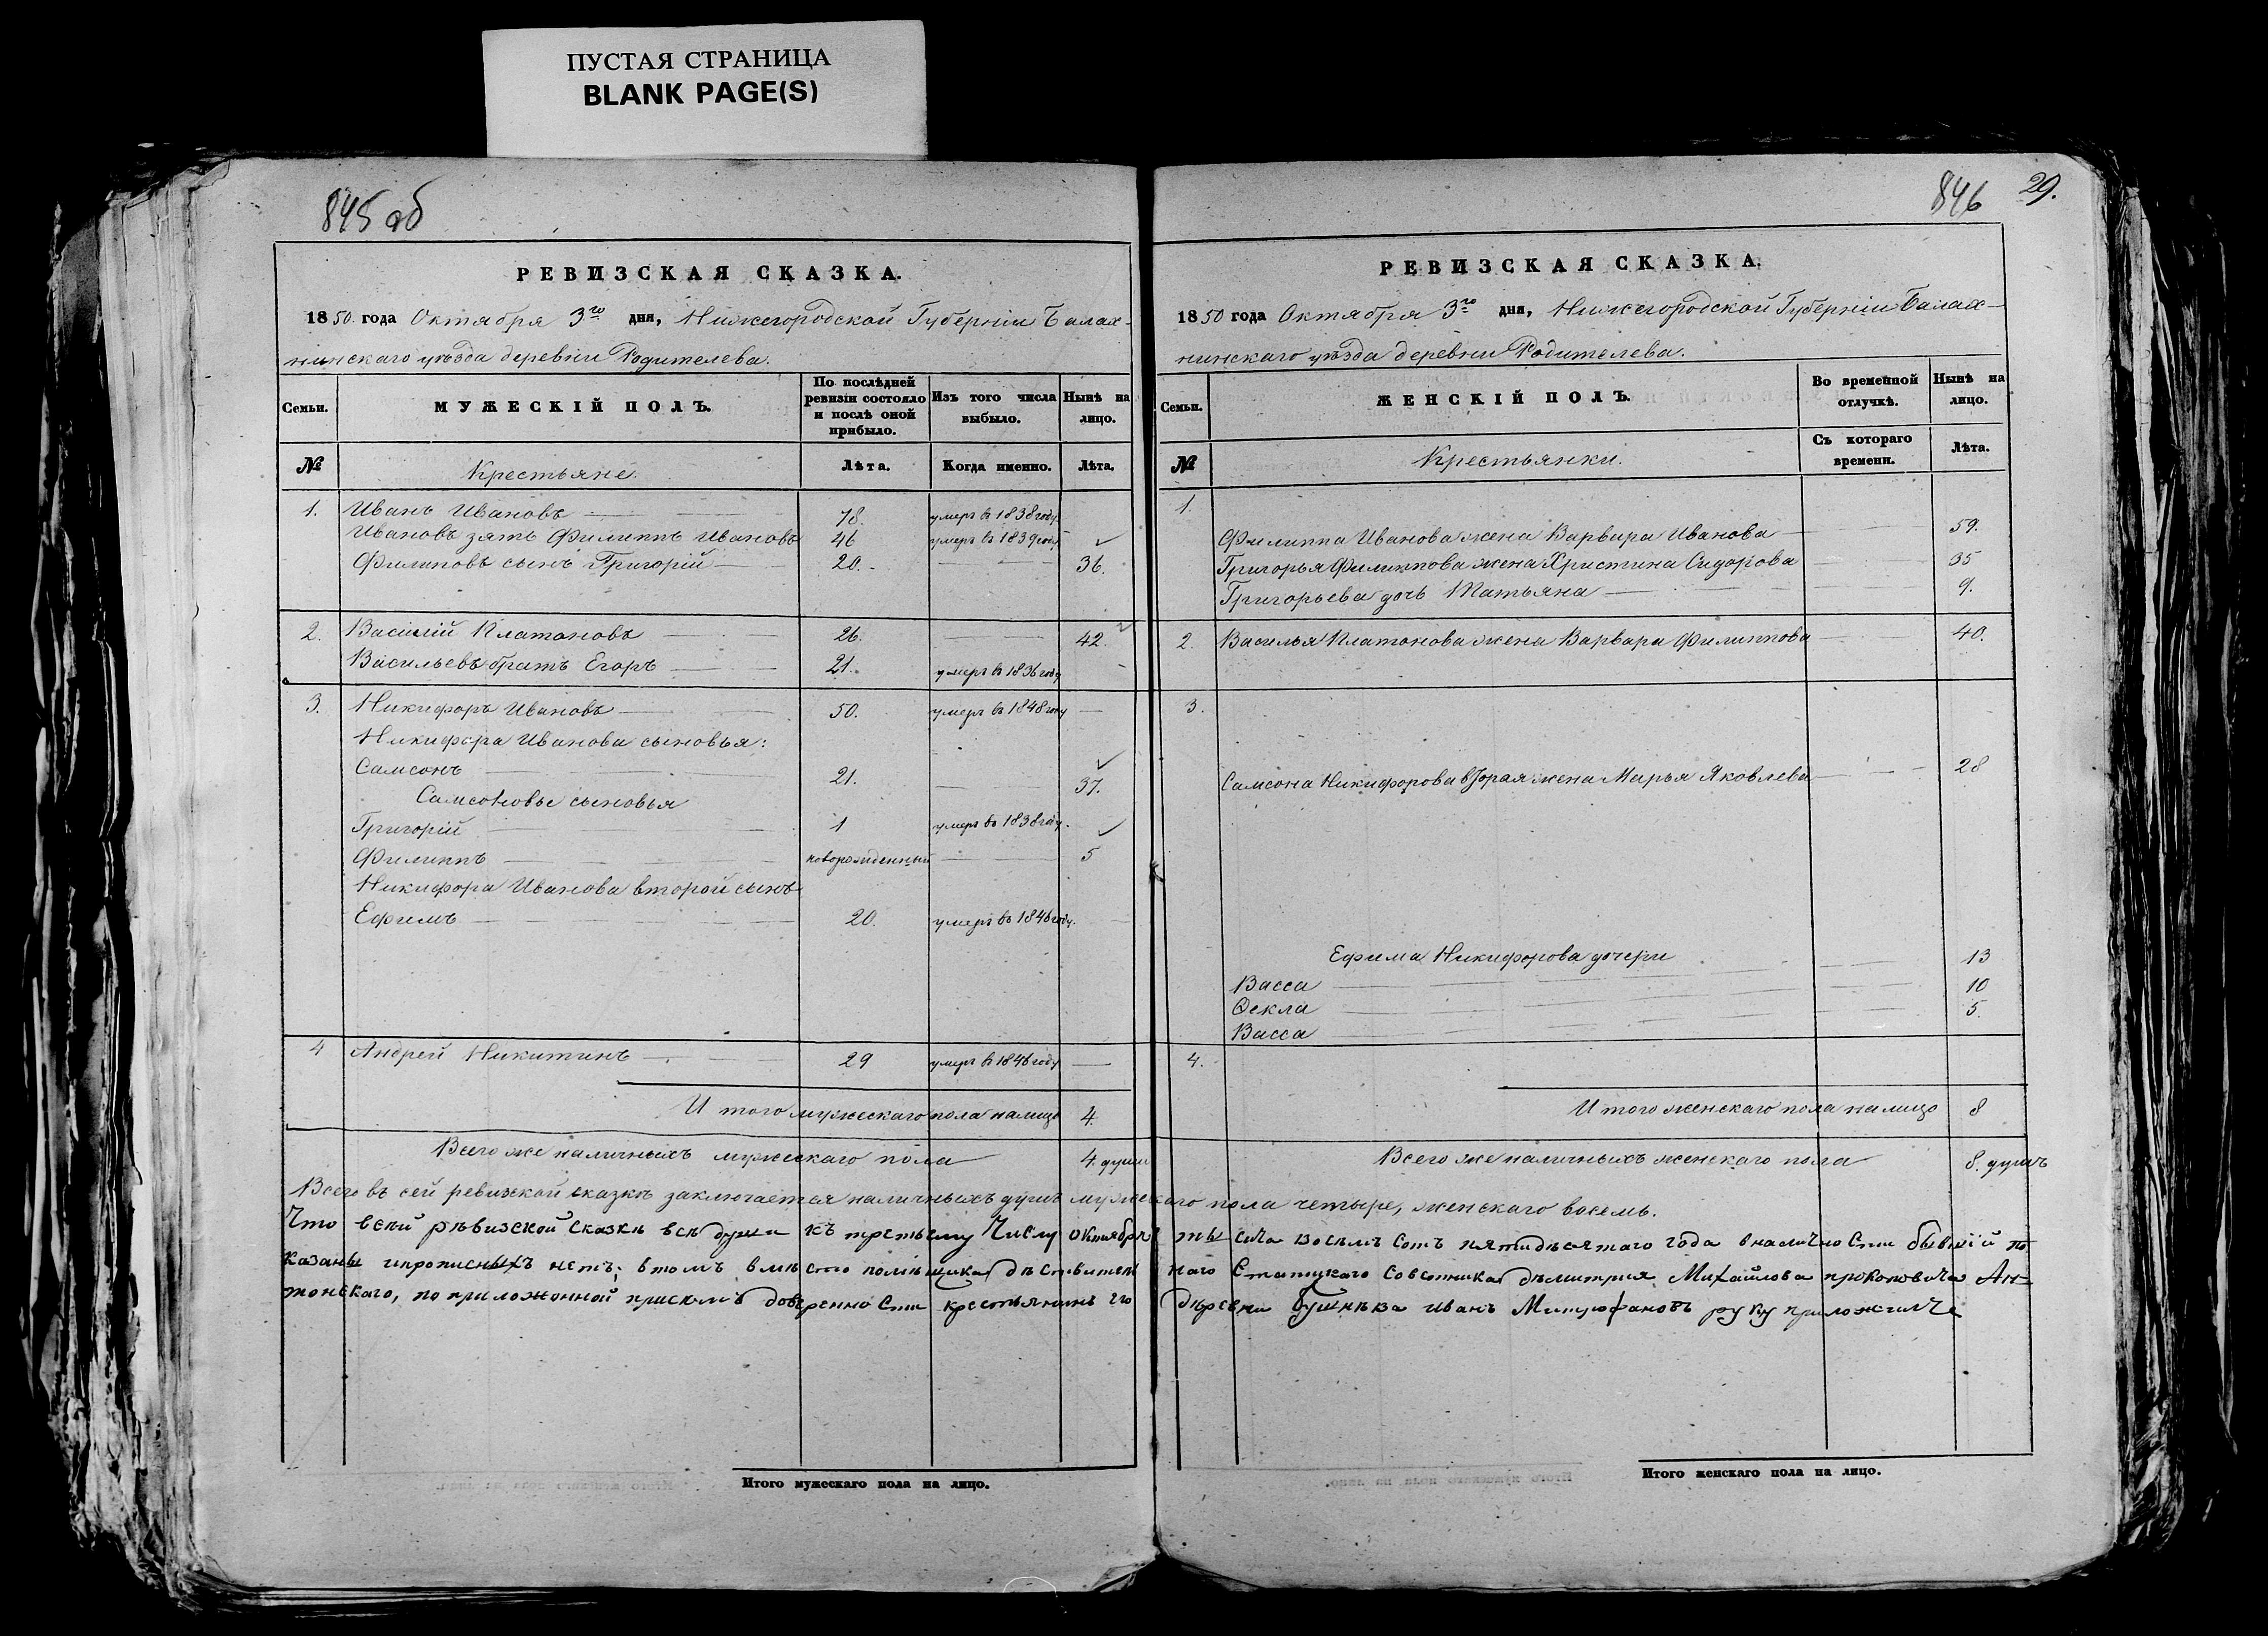 ПУСТАЯ СТРАНИЦА
BLANK PAGE(S)
845 об
РЕВИЗСКАЯ СКАЗКА.
1850. года Октября 3го дня, Нижегородской Губерніи Балах-
нинскаго уѣзда деревни Родителева.
Семьи. МУЖЕСКІЙ ПОЛЪ. По послѣдней ревизіи состояло и послѣ оной прибыло. Изъ того числа выбыло. Нынѣ на лицо.
№ Крестьяне. Лѣта. Когда именно. Лѣта.
1. Иванъ Ивановъ 78. умеръ въ 1838 году.
Ивановъ зять Филиппъ Ивановъ 46 умеръ въ 1839 году
Филиповъ сынъ Григорій 20. 36.
2. Василій Платоновъ 26. 42.
Васильевъ братъ Егоръ 21. умеръ въ 1836 году
3. Никифоръ Ивановъ 50. умеръ въ 1848 году
Никифора Иванова сыновья:
Самсонъ 21. 37.
Самсоновы сыновья
Григорій 1 умеръ въ 1838 году.
Филиппъ новорожденный 5
Никифора Иванова второй сынъ
Ефимъ 20. умеръ въ 1846 году.
4 Андрей Никитинъ 29 умеръ въ 1846 году
Итого мужескаго пола налицо 4.
Всего же наличныхъ мужескаго пола 4. души
846 29.
РЕВИЗСКАЯ СКАЗКА.
1850 года Октября 3го дня, Нижегородской Губерніи Балах-
нинскаго уѣзда деревни Родителева.
Семьи. ЖЕНСКІЙ ПОЛЪ. Во временной отлучкѣ. Нынѣ на лицо.
№ Крестьянки. Съ котораго времени. Лѣта.
1.
Филиппа Иванова жена Варвара Иванова 59.
Григорья Филиппова жена Христина Сидорова 35
Григорьева дочь Татьяна 9.
2. Василья Платонова жена Варвара Филиппова 40.
3.
Самсона Никифорова вторая жена Марья Яковлева 28
Ефима Никифорова дочери 13
Васса 10
Ѳекла 5.
Васса
4.
Итого женскаго пола налицо 8
Всего же наличныхъ женскаго пола 8. душъ
Всего въ сей ревизской сказкѣ заключается наличныхъ душъ мужескаго пола четыре, женскаго восемь.
Что всѣй рѣвизской сказкѣ всѣ души къ третьему Числу октября тысяча восѣмъ сотъ пятидѣсятаго года вналичности бывшiй по
казаны ипрописныхъ нетъ; втомъ вмѣсто помѣщика дѣствитель наго Статцкаго Советника дѣмитрия Михайлова прокоповича Ан-
тонскаго, по приложонной присемъ доверенности крестьянинъ его дѣревни Иванъ Митрофановъ руку приложилъ
Итого мужескаго пола на лицо.
Итого женскаго пола на лицо.